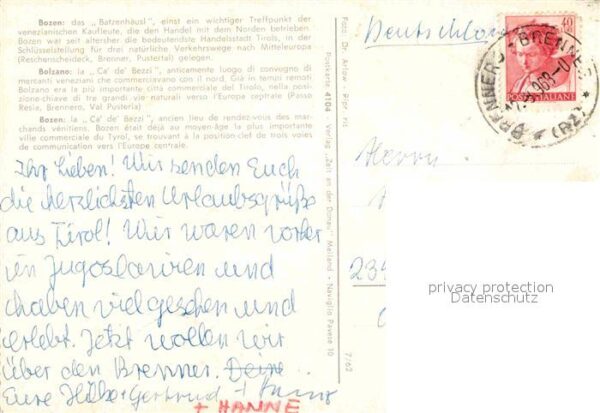 Bozen: das „Batzenhäusl", einst ein wichtiger Treffpunkt der
venezianischen Kaufleute, die den Handel mit dem Norden betrieben.
Bozen war seit altersher die bedeutendste Handelsstadt Tirols, in der
Schlüsselstellung für drei natürliche Verkehrswege nach Mitteleuropa
(Reschenscheideck, Brenner, Pustertal) gelegen.
Bolzano: la „Ca' de' Bezzi", anticamente luogo di convegno di
mercanti veneziani che commerciavano con il nord. Già in tempi remoti
Bolzano era la più importante città commerciale del Tirolo, nella
posizione-chiave di tre grandi vie naturali verso l'Europa centrale (Passo
Resia, Brennero, Val Pusteria)
Bozen: la „Ca' de' Bezzi", ancien lieu de rendez-vous des
marchands vénitiens. Bozen était déjà au moyen-âge la plus importante
ville commerciale du Tyrol, se trouvant à la position-clef de trois voies
de communication vers l'Europe centrale.
Ihr Lieben! Wir senden Euch
die herzlichsten Urlaubsgrüße
aus Tirol! Wir waren vorher
in Jugoslavien und
haben viel gesehen und
erlebt. Jetzt wollen wir
über den Brenner.
Eure Gertrud +
+ HANNE
Foto Dr. Arlow
Postkarte 4104 Verlag „Zeit an der Donau" Mailand - Naviglio Pavese 10
7/62
Deutschland
40
POSTE ITALIANE
BRENNERO - BRENNER
(BZ)
Herrn
privacy protection
Datenschutz